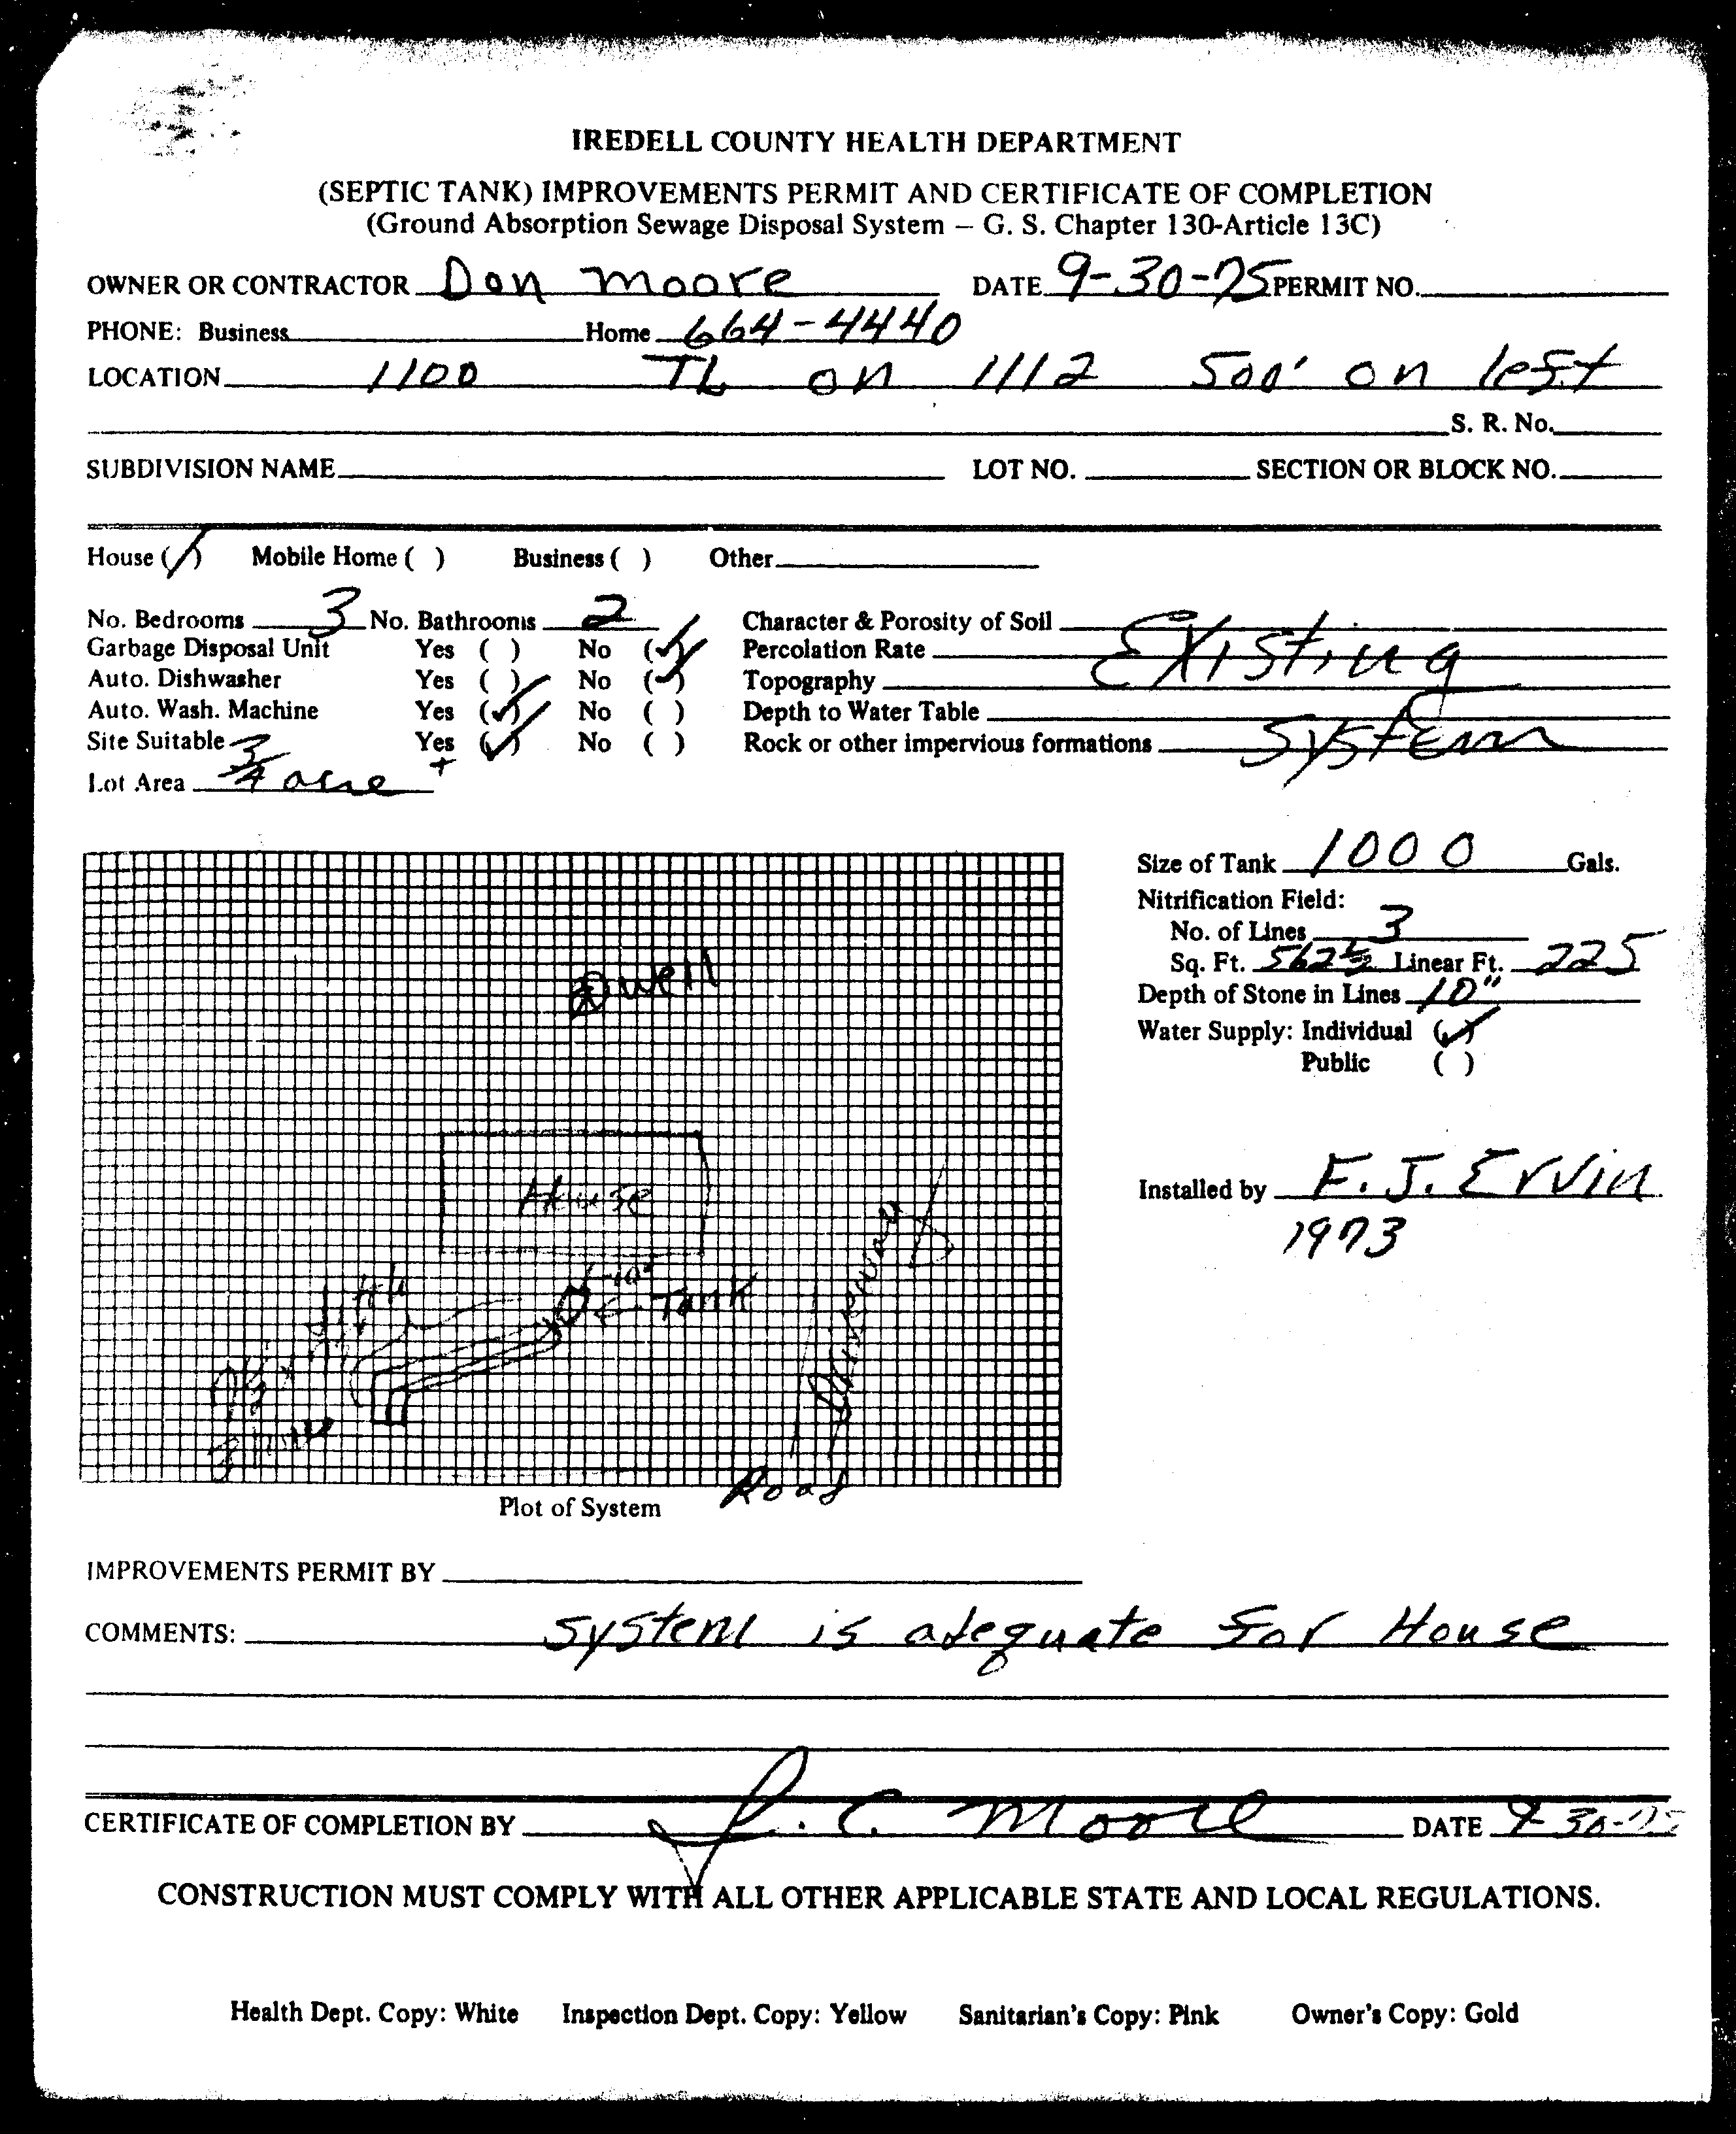 IREDELL COUNTY HEALTH DEPARTMENT
(SEPTIC TANK) IMPROVEMENTS PERMIT AND CERTIFICATE OF COMPLETION
(Ground Absorption Sewage Disposal System – G. S. Chapter 130-Article 13C)
OWNER OR CONTRACTOR Don Moore DATE 9-30-75 PERMIT NO.
PHONE: Business Home 664-4440
LOCATION 1100 TL on 1112 500' on left
S. R. No.
SUBDIVISION NAME LOT NO. SECTION OR BLOCK NO.
House (✓) Mobile Home ( ) Business ( ) Other
No. Bedrooms 3 No. Bathrooms 2 Character & Porosity of Soil
Garbage Disposal Unit Yes ( ) No (✓) Percolation Rate Existing
Auto. Dishwasher Yes ( ) No (✓) Topography
Auto. Wash. Machine Yes (✓) No ( ) Depth to Water Table
Site Suitable Yes (✓) No ( ) Rock or other impervious formations System
Lot Area 3/4 acre +
Size of Tank 1000 Gals.
Nitrification Field:
No. of Lines 3
Sq. Ft. 562 1/2 Linear Ft. 225
Depth of Stone in Lines 10"
Water Supply: Individual (✓)
Public ( )
well
House
Tank
Driveway
Road
Installed by F. J. Ervin
1973
Plot of System
IMPROVEMENTS PERMIT BY
COMMENTS: System is adequate for House
CERTIFICATE OF COMPLETION BY J. C. Moore DATE 9-30-75
CONSTRUCTION MUST COMPLY WITH ALL OTHER APPLICABLE STATE AND LOCAL REGULATIONS.
Health Dept. Copy: White Inspection Dept. Copy: Yellow Sanitarian's Copy: Pink Owner's Copy: Gold